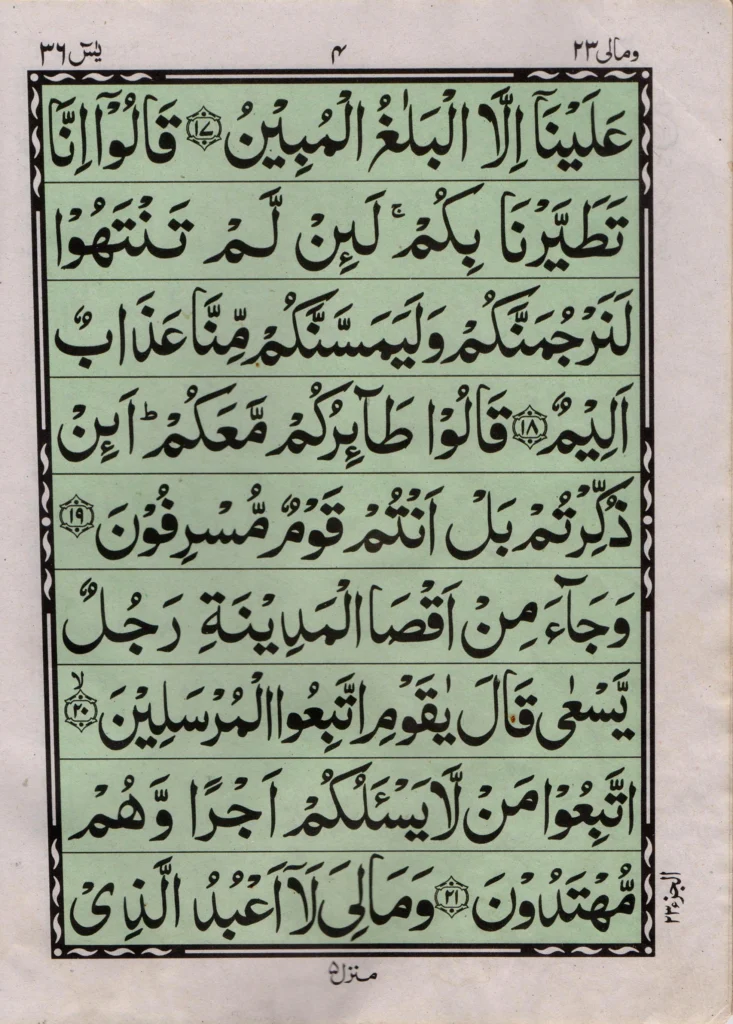 ومالی ٢٣ ۴ یٰسٓ ٣٦
عَلَيْنَآ اِلَّا الْبَلٰغُ الْمُبِيْنُ ﴿١٧﴾ قَالُوْۤا اِنَّا
تَطَيَّرْنَا بِكُمْ ۚ لَىِٕنْ لَّمْ تَنْتَهُوْا
لَنَرْجُمَنَّكُمْ وَلَيَمَسَّنَّكُمْ مِّنَّا عَذَابٌ
اَلِيْمٌ ﴿١٨﴾ قَالُوْا طَآىِٕرُكُمْ مَّعَكُمْ ؕ اَىِٕنْ
ذُكِّرْتُمْ بَلْ اَنْتُمْ قَوْمٌ مُّسْرِفُوْنَ ﴿١٩﴾
وَجَآءَ مِنْ اَقْصَا الْمَدِيْنَةِ رَجُلٌ
يَّسْعٰى قَالَ يٰقَوْمِ اتَّبِعُوا الْمُرْسَلِيْنَ ﴿٢٠﴾ ۙ
اتَّبِعُوْا مَنْ لَّا يَسْـَٔلُكُمْ اَجْرًا وَّهُمْ
مُّهْتَدُوْنَ ﴿٢١﴾ وَمَالِىَ لَآ اَعْبُدُ الَّذِىْ
الجزء ٢٣
منزل ۵